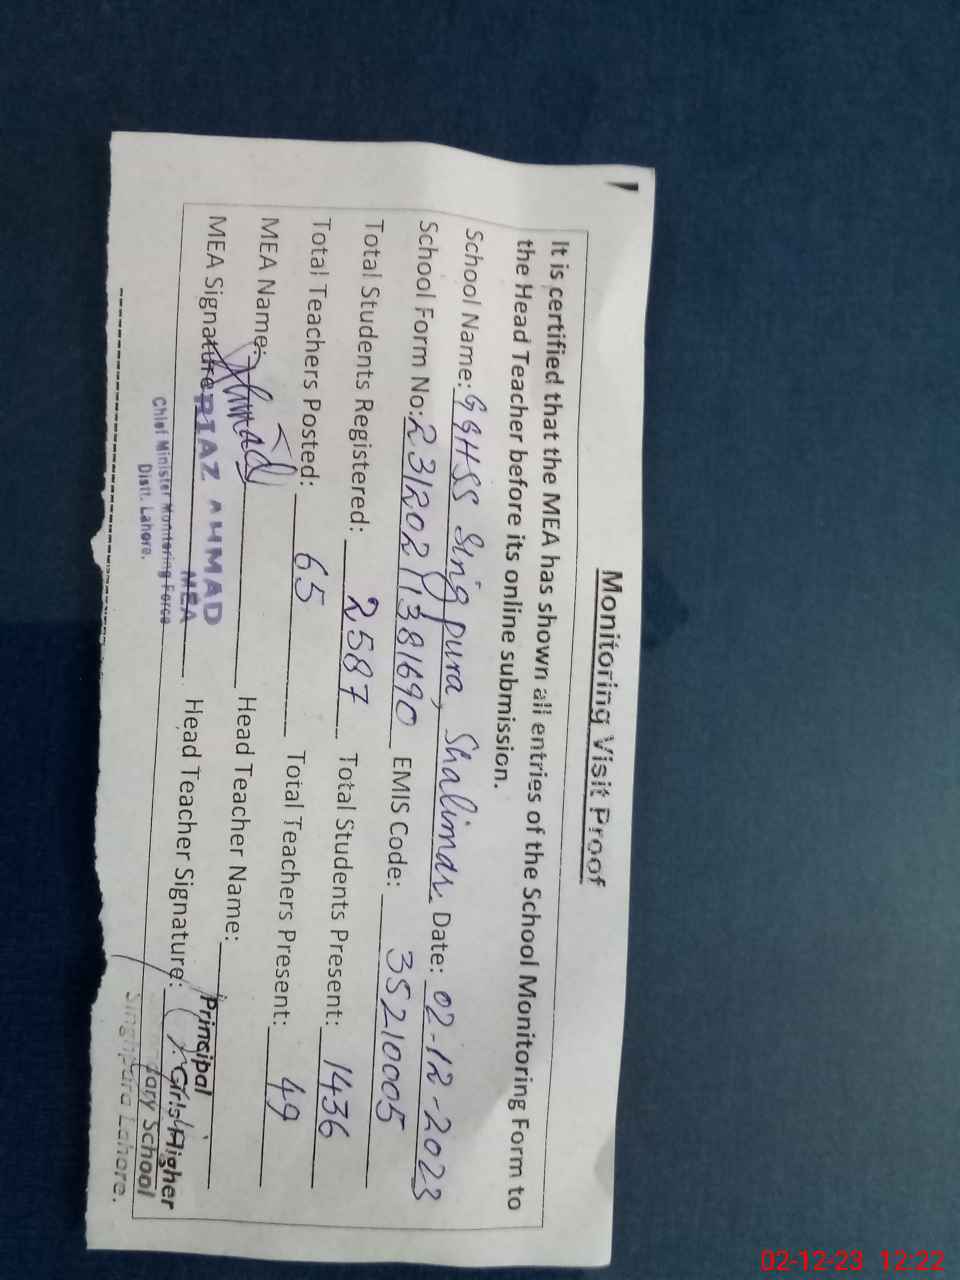 Monitoring Visit Proof
It is certified that the MEA has shown all entries of the School Monitoring Form to
the Head Teacher before its online submission.
School Name: GGHSS Singpura, Shalimar Date: 02-12-2023
School Form No: 2312021381690 EMIS Code: 35210005
Total Students Registered: 2587 Total Students Present: 1436
Total Teachers Posted: 65 Total Teachers Present: 49
MEA Name: Ahmad Head Teacher Name:
MEA Signature Head Teacher Signature:
RIAZ AHMAD
MEA
Chief Minister Monitoring Force
Distt. Lahore.
Principal
Girls Higher
dary School
Singhpura Lahore.
02-12-23 12:22